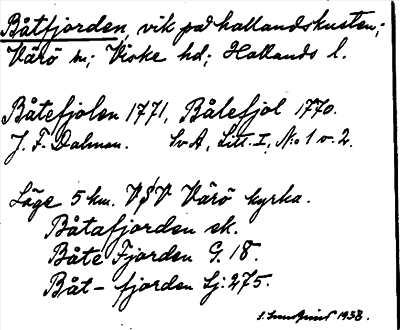 Båtfjorden, vik på hallandskusten;
Värö sn; Viske hd; Hallands l.
Båtefjolen 1771, Bålefjol 1770.
J. F. Dalman. SvA, Litt. I, No 1 o. 2.
Läge 5 km. VSV Värö kyrka.
Båtafjorden sk.
Båte Fjorden G. 18.
Båt-fjorden Lj: 275.
S. Sundqvist 1938.